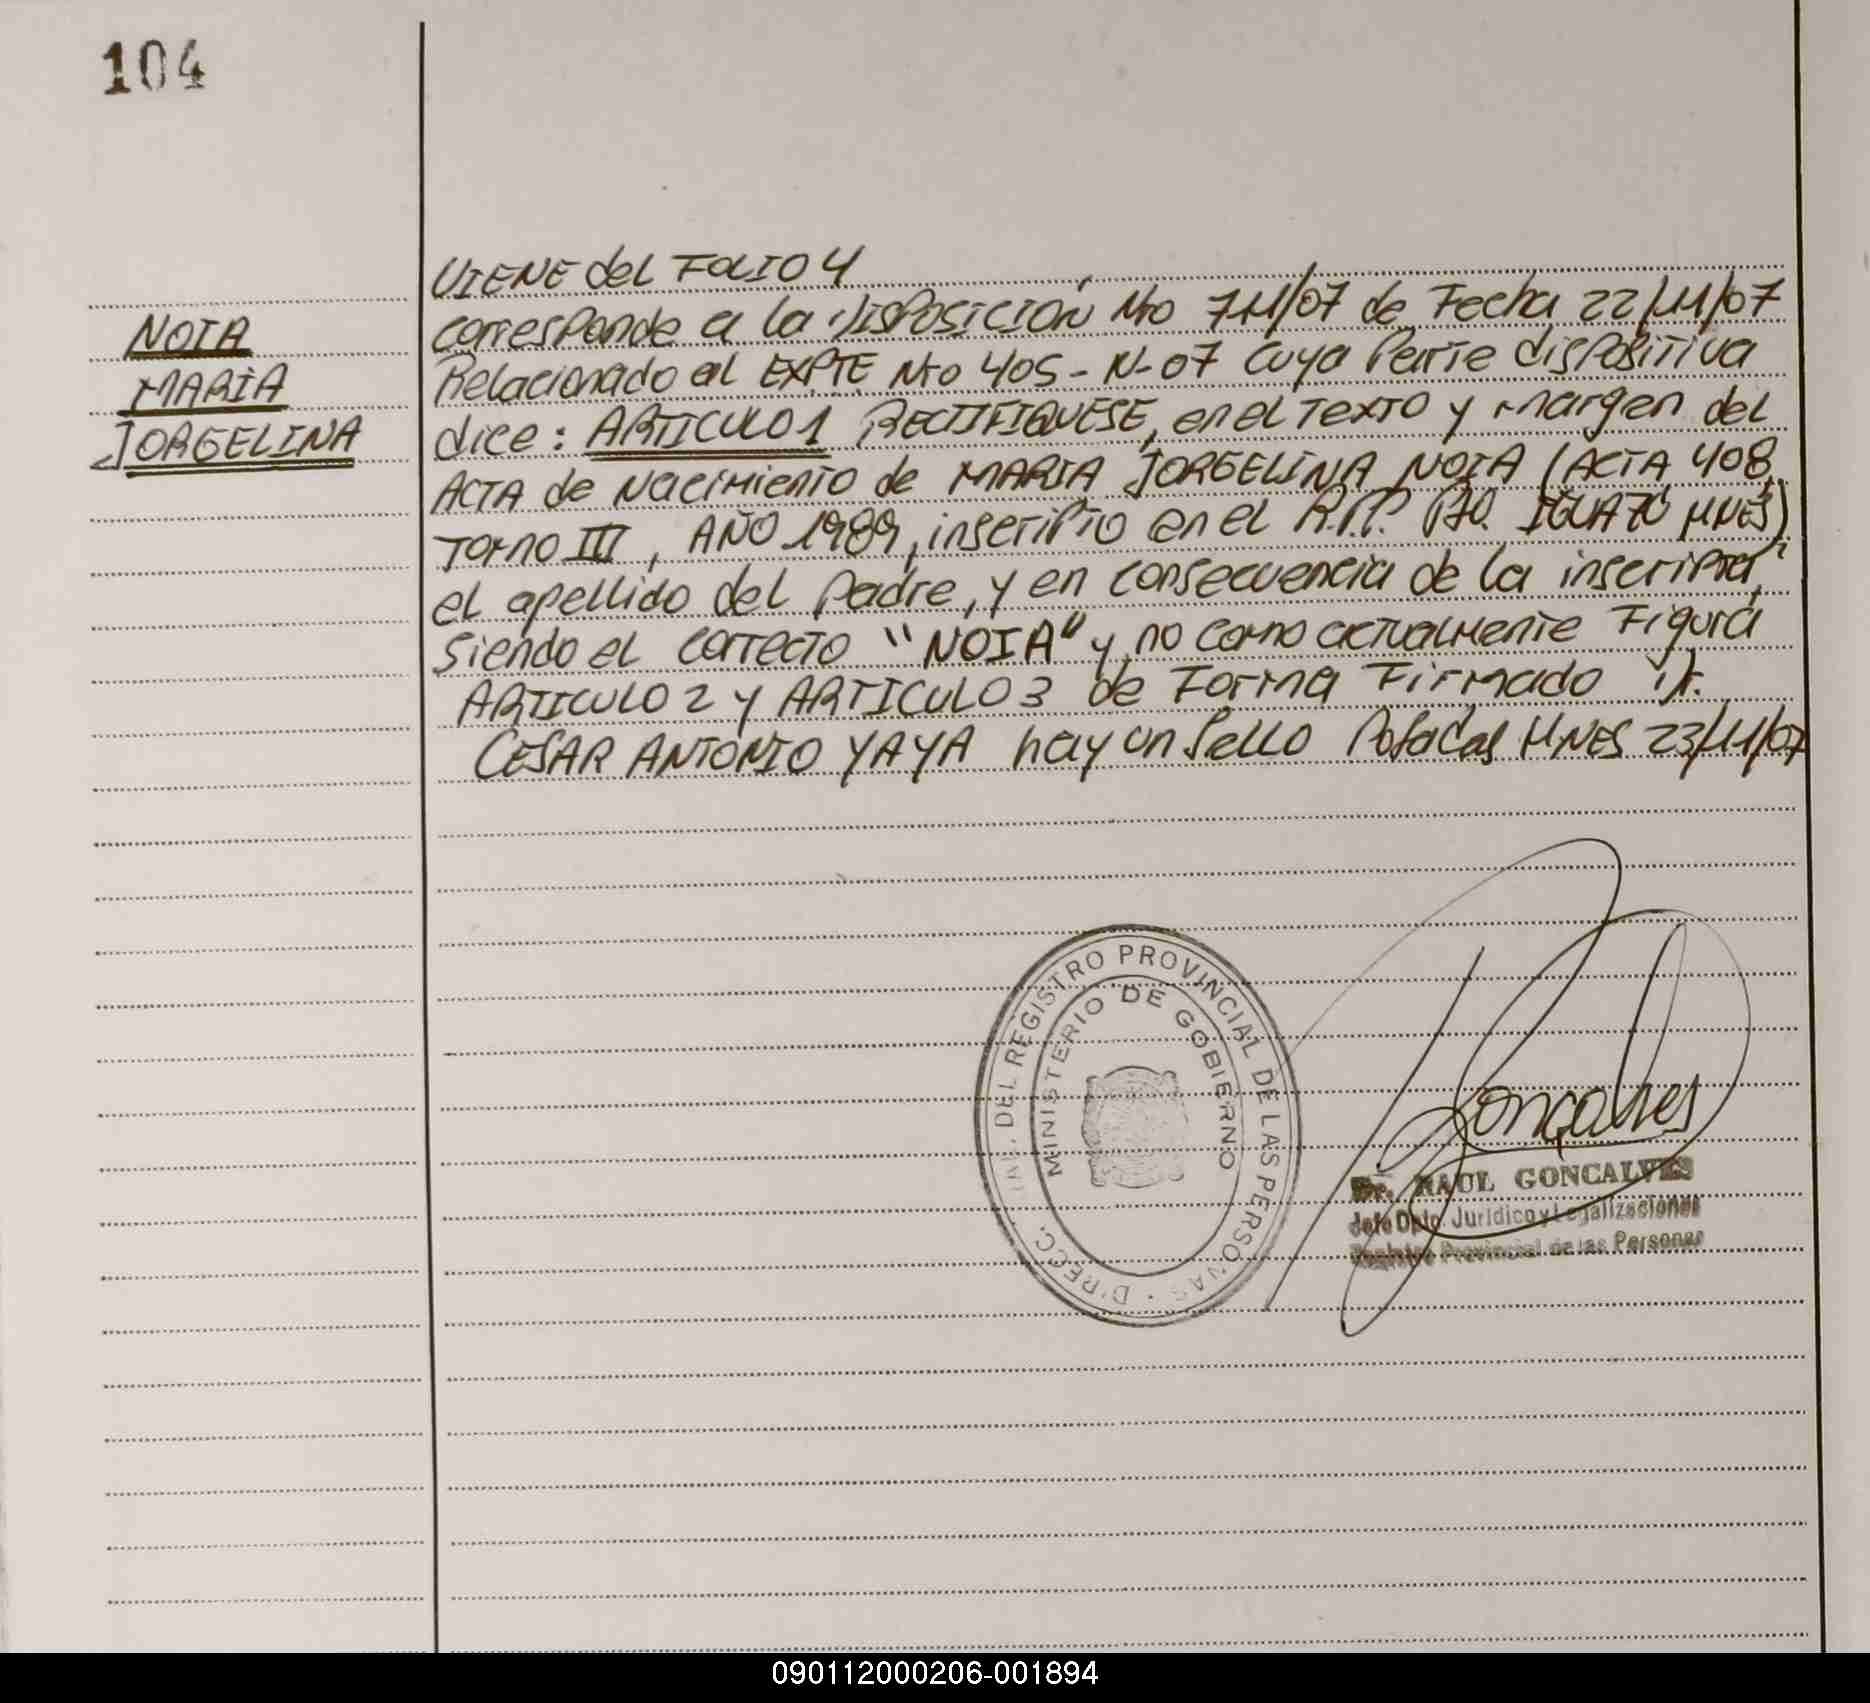 104
NOIA
MARIA
JORGELINA
VIENE del FOLIO 4
corresponde a la DISPOSICIÓN Nro 711/07 de Fecha 22/11/07
Relacionado al EXPTE Nro 405-N-07 cuya Parte dispositiva
dice: ARTICULO 1 RECTIFIQUESE, en el Texto y margen del
ACTA de Nacimiento de MARIA JORGELINA NOIA (ACTA 408,
Tomo III, AÑO 1989, inscripto en el R.P.P. PTO. IGUAZÚ MNES)
el apellido del Padre, y en consecuencia de la inscripta,
siendo el correcto "NOIA" y no como actualmente Figura
ARTICULO 2 y ARTICULO 3 de Forma Firmado Dr.
CESAR ANTONIO YAYA hay un Sello Posadas MNES 23/11/07
DEL REGISTRO PROVINCIAL DE LAS PERSONAS · DIRECC.
MINISTERIO DE GOBIERNO
Goncalves
Dr. RAUL GONCALVES
Jefe Dpto. Jurídico y Legalizaciones
Registro Provincial de las Personas
090112000206-001894